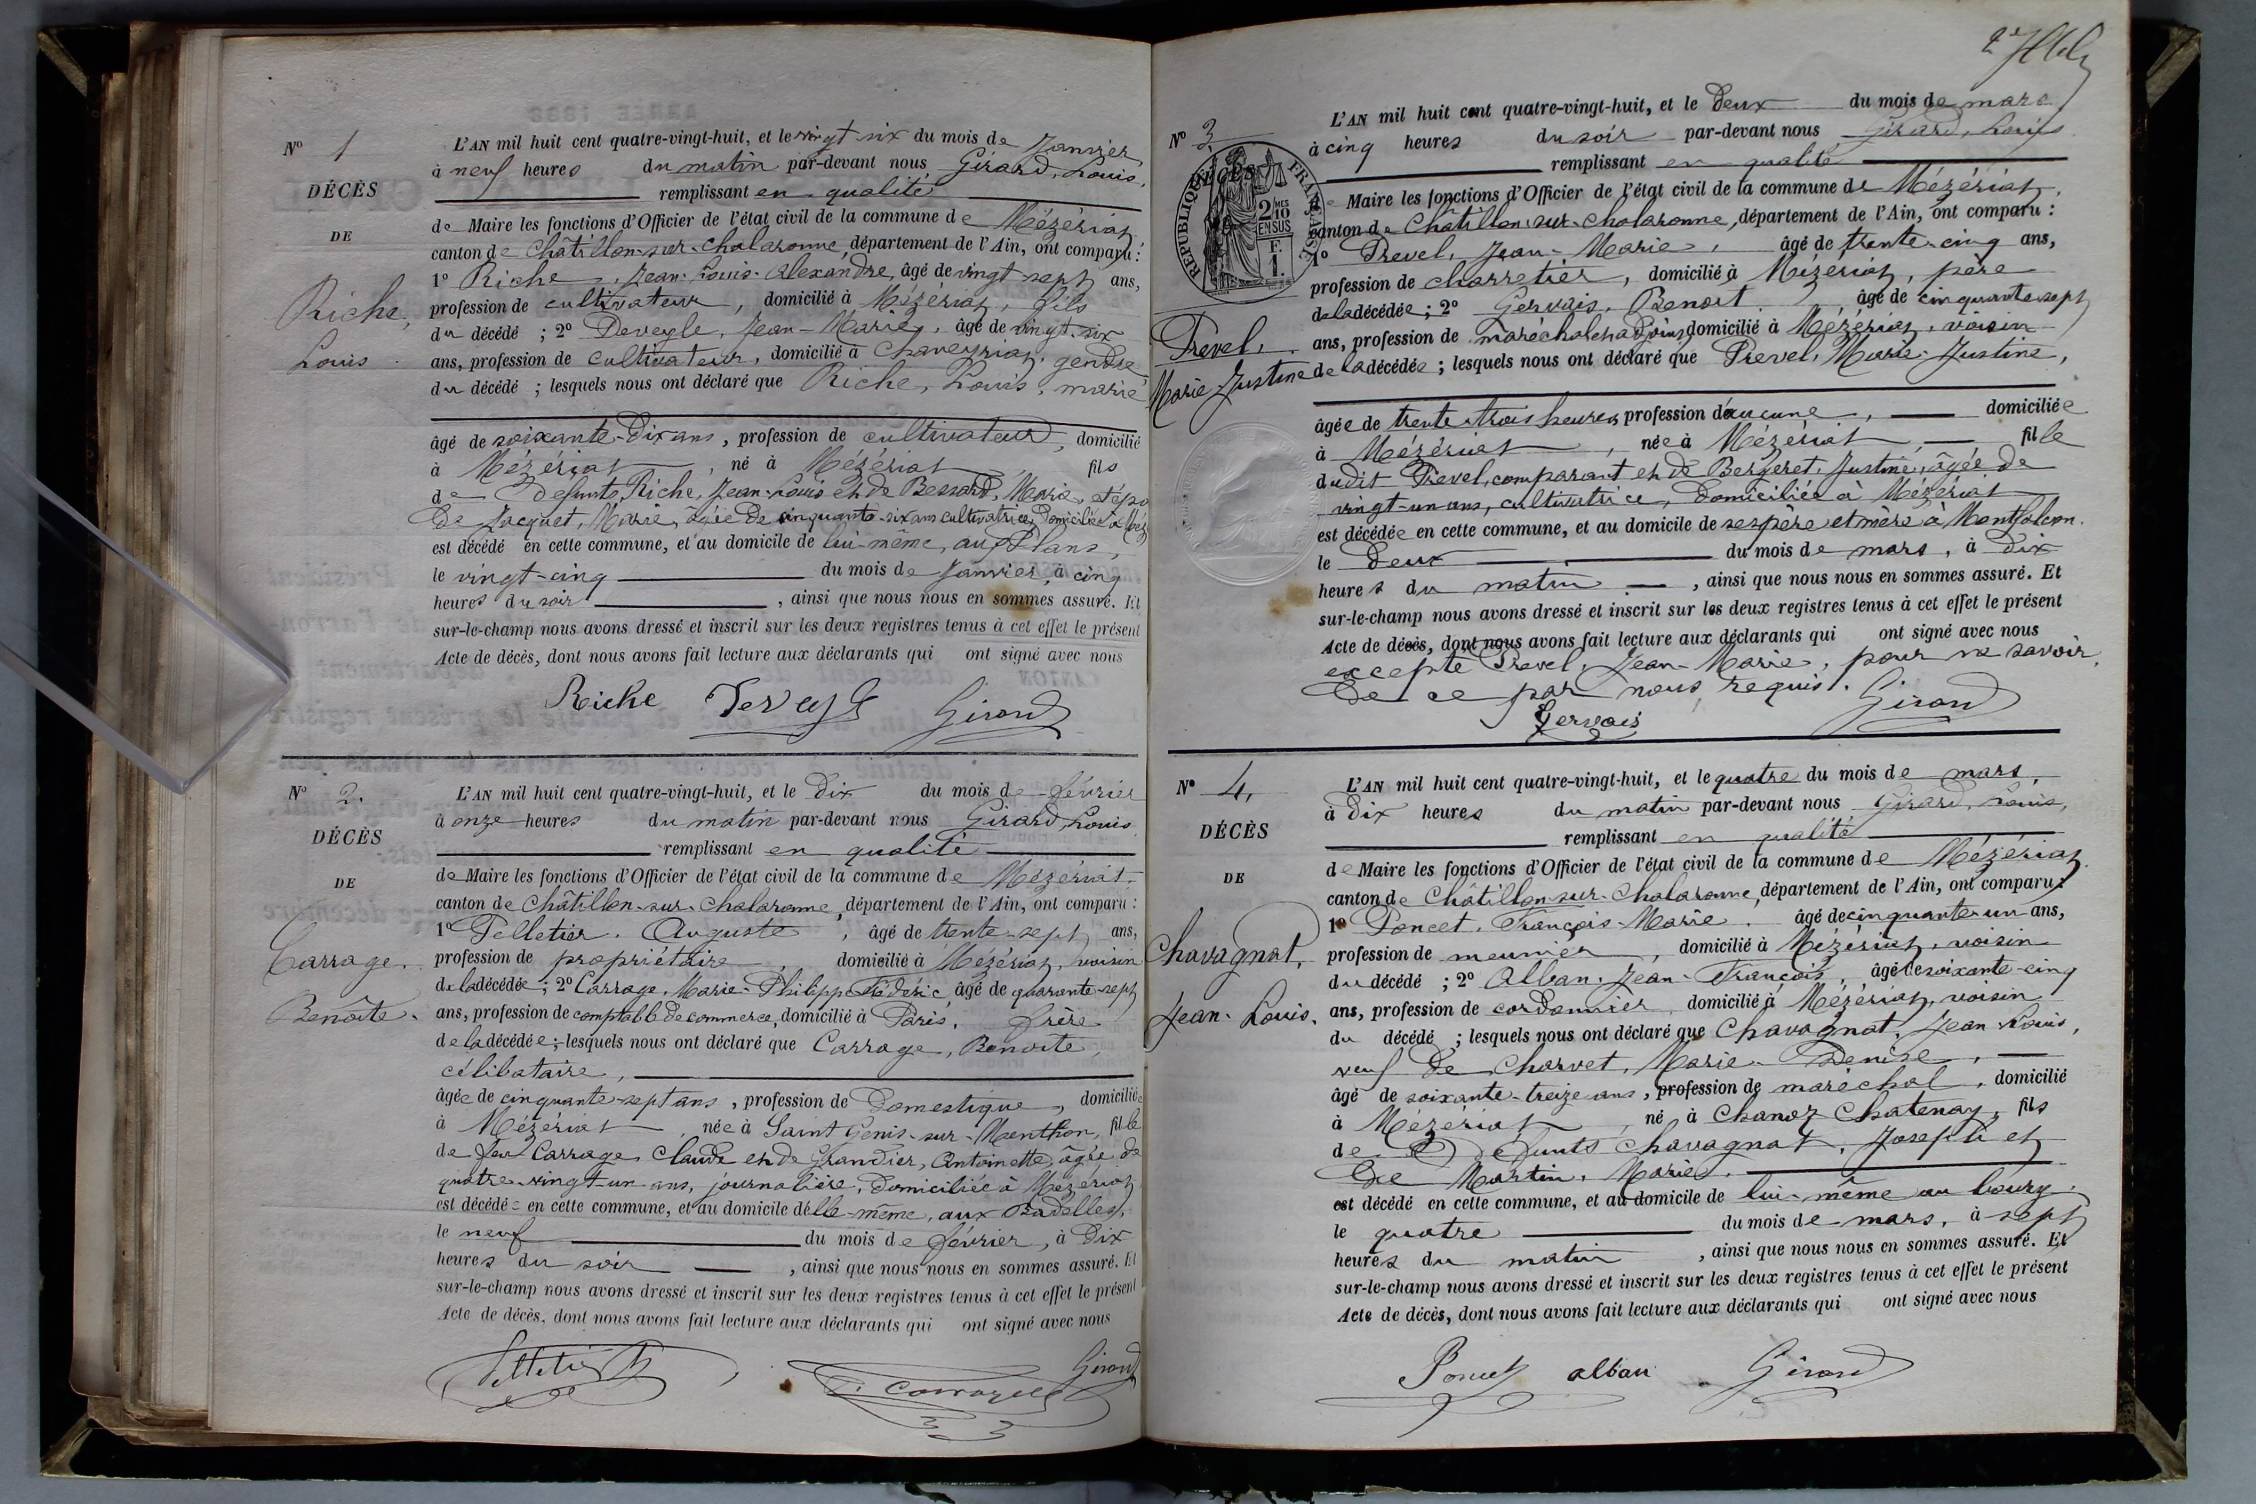 N° 1
DÉCÈS
DE
Riche,
Louis.
L'AN mil huit cent quatre-vingt-huit, et le vingt six du mois de Janvier
à neuf heures du matin par-devant nous Girard, Louis,
remplissant en qualité
de Maire les fonctions d'Officier de l'état civil de la commune de Mézériat,
canton de Châtillon-sur-Chalaronne, département de l'Ain, ont comparu :
1° Riche, Jean-Louis-Alexandre, âgé de vingt sept ans,
profession de cultivateur, domicilié à Mézériat, fils
du décédé ; 2° Deveyle, Jean-Marie, âgé de vingt-six
ans, profession de cultivateur, domicilié à Chaveyriat, gendre
du décédé ; lesquels nous ont déclaré que Riche, Louis, marié
âgé de soixante-dix ans, profession de cultivateur, domicilié
à Mézériat, né à Mézériat, fils
de défunts Riche, Jean-Louis et de Bessard, Marie, et époux
de Jacquet, Marie, âgée de cinquante-six ans cultivatrice, domiciliée à Méz
est décédé en cette commune, et au domicile de lui-même, aux Plans,
le vingt-cinq du mois de Janvier, à cinq
heures du soir, ainsi que nous nous en sommes assuré. Et
sur-le-champ nous avons dressé et inscrit sur les deux registres tenus à cet effet le présent
Acte de décès, dont nous avons fait lecture aux déclarants qui ont signé avec nous
Riche Deveyle Girard
N° 2.
DÉCÈS
DE
Carrage,
Benoîte.
L'AN mil huit cent quatre-vingt-huit, et le dix du mois de février
à onze heures du matin par-devant nous Girard, Louis
remplissant en qualité
de Maire les fonctions d'Officier de l'état civil de la commune de Mézériat,
canton de Châtillon-sur-Chalaronne, département de l'Ain, ont comparu :
1° Pelletier, Auguste, âgé de trente-sept ans,
profession de propriétaire, domicilié à Mézériat, voisin
de la décédée ; 2° Carrage, Marie-Philippe Frédéric, âgé de quarante-sept
ans, profession de comptable de commerce, domicilié à Paris, frère
de la décédée ; lesquels nous ont déclaré que Carrage, Benoîte,
célibataire,
âgée de cinquante-sept ans, profession de domestique, domiciliée
à Mézériat, née à Saint Genis-sur-Menthon, fille
de feu Carrage Claude et de Grandier, Antoinette, âgée de
quatre-vingt-un ans, journalière, domiciliée à Mézériat
est décédée en cette commune, et au domicile d'elle-même, aux Badelles,
le neuf du mois de février, à dix
heures du soir, ainsi que nous nous en sommes assuré. Et
sur-le-champ nous avons dressé et inscrit sur les deux registres tenus à cet effet le présent
Acte de décès, dont nous avons fait lecture aux déclarants qui ont signé avec nous
Pelletier Carrage Girard
N° 3.
Décès
RÉPUBLIQUE FRANÇAISE
2 MES
10
EN SUS
F.
1.
Prevel,
Marie Justine
L'AN mil huit cent quatre-vingt-huit, et le deux du mois de mars
à cinq heures du soir par-devant nous Girard, Louis
remplissant en qualité
de Maire les fonctions d'Officier de l'état civil de la commune de Mézériat,
canton de Châtillon-sur-Chalaronne, département de l'Ain, ont comparu :
1° Prevel, Jean-Marie, âgé de trente-cinq ans,
profession de charretier, domicilié à Mézériat, père
de la décédée ; 2° Gervais, Benoit, âgé de cinquante-sept
ans, profession de maréchal domicilié à Mézériat, voisin
de la décédée ; lesquels nous ont déclaré que Prevel, Marie-Justine,
âgée de trente-trois heures, profession d'aucune, domiciliée
à Mézériat, née à Mézériat, fille
dudit Prevel, comparant et de Bergeret, Justine, âgée de
vingt-un ans, cultivatrice, domiciliée à Mézériat
est décédée en cette commune, et au domicile de ses père et mère à Montfalcon.
le deux du mois de mars, à dix
heures du matin, ainsi que nous nous en sommes assuré. Et
sur-le-champ nous avons dressé et inscrit sur les deux registres tenus à cet effet le présent
Acte de décès, dont nous avons fait lecture aux déclarants qui ont signé avec nous
excepté Prevel, Jean-Marie, pour ne savoir,
de ce par nous requis.
Gervais Girard
N° 4.
DÉCÈS
DE
Chavagnat,
Jean-Louis.
L'AN mil huit cent quatre-vingt-huit, et le quatre du mois de mars,
à dix heures du matin par-devant nous Girard, Louis,
remplissant en qualité
de Maire les fonctions d'Officier de l'état civil de la commune de Mézériat,
canton de Châtillon-sur-Chalaronne, département de l'Ain, ont comparu :
1° Poncet, François-Marie, âgé de cinquante-un ans,
profession de meunier, domicilié à Mézériat, voisin
du décédé ; 2° Alban, Jean-François, âgé de soixante-cinq
ans, profession de cordonnier, domicilié à Mézériat, voisin
du décédé ; lesquels nous ont déclaré que Chavagnat, Jean Louis,
veuf de Charvet, Marie-Denise,
âgé de soixante-treize ans, profession de maréchal, domicilié
à Mézériat, né à Chanoz Chatenay, fils
de Défunts Chavagnat, Joseph et
de Martin, Marie,
est décédé en cette commune, et au domicile de lui-même au bourg.
le quatre du mois de mars, à sept
heures du matin, ainsi que nous nous en sommes assuré. Et
sur-le-champ nous avons dressé et inscrit sur les deux registres tenus à cet effet le présent
Acte de décès, dont nous avons fait lecture aux déclarants qui ont signé avec nous
Poncet alban Girard